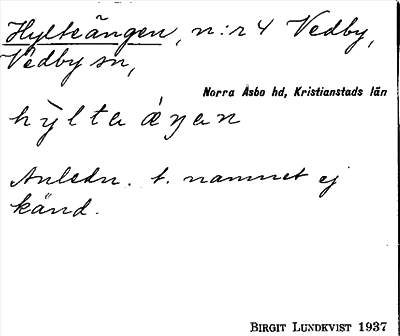 Hylteängen, n:r 4 Vedby,
Vedby sn,
Norra Åsbo hd, Kristianstads län
hỳlta áŋan
Anledn. t. namnet ej
känd.
BIRGIT LUNDKVIST 1937